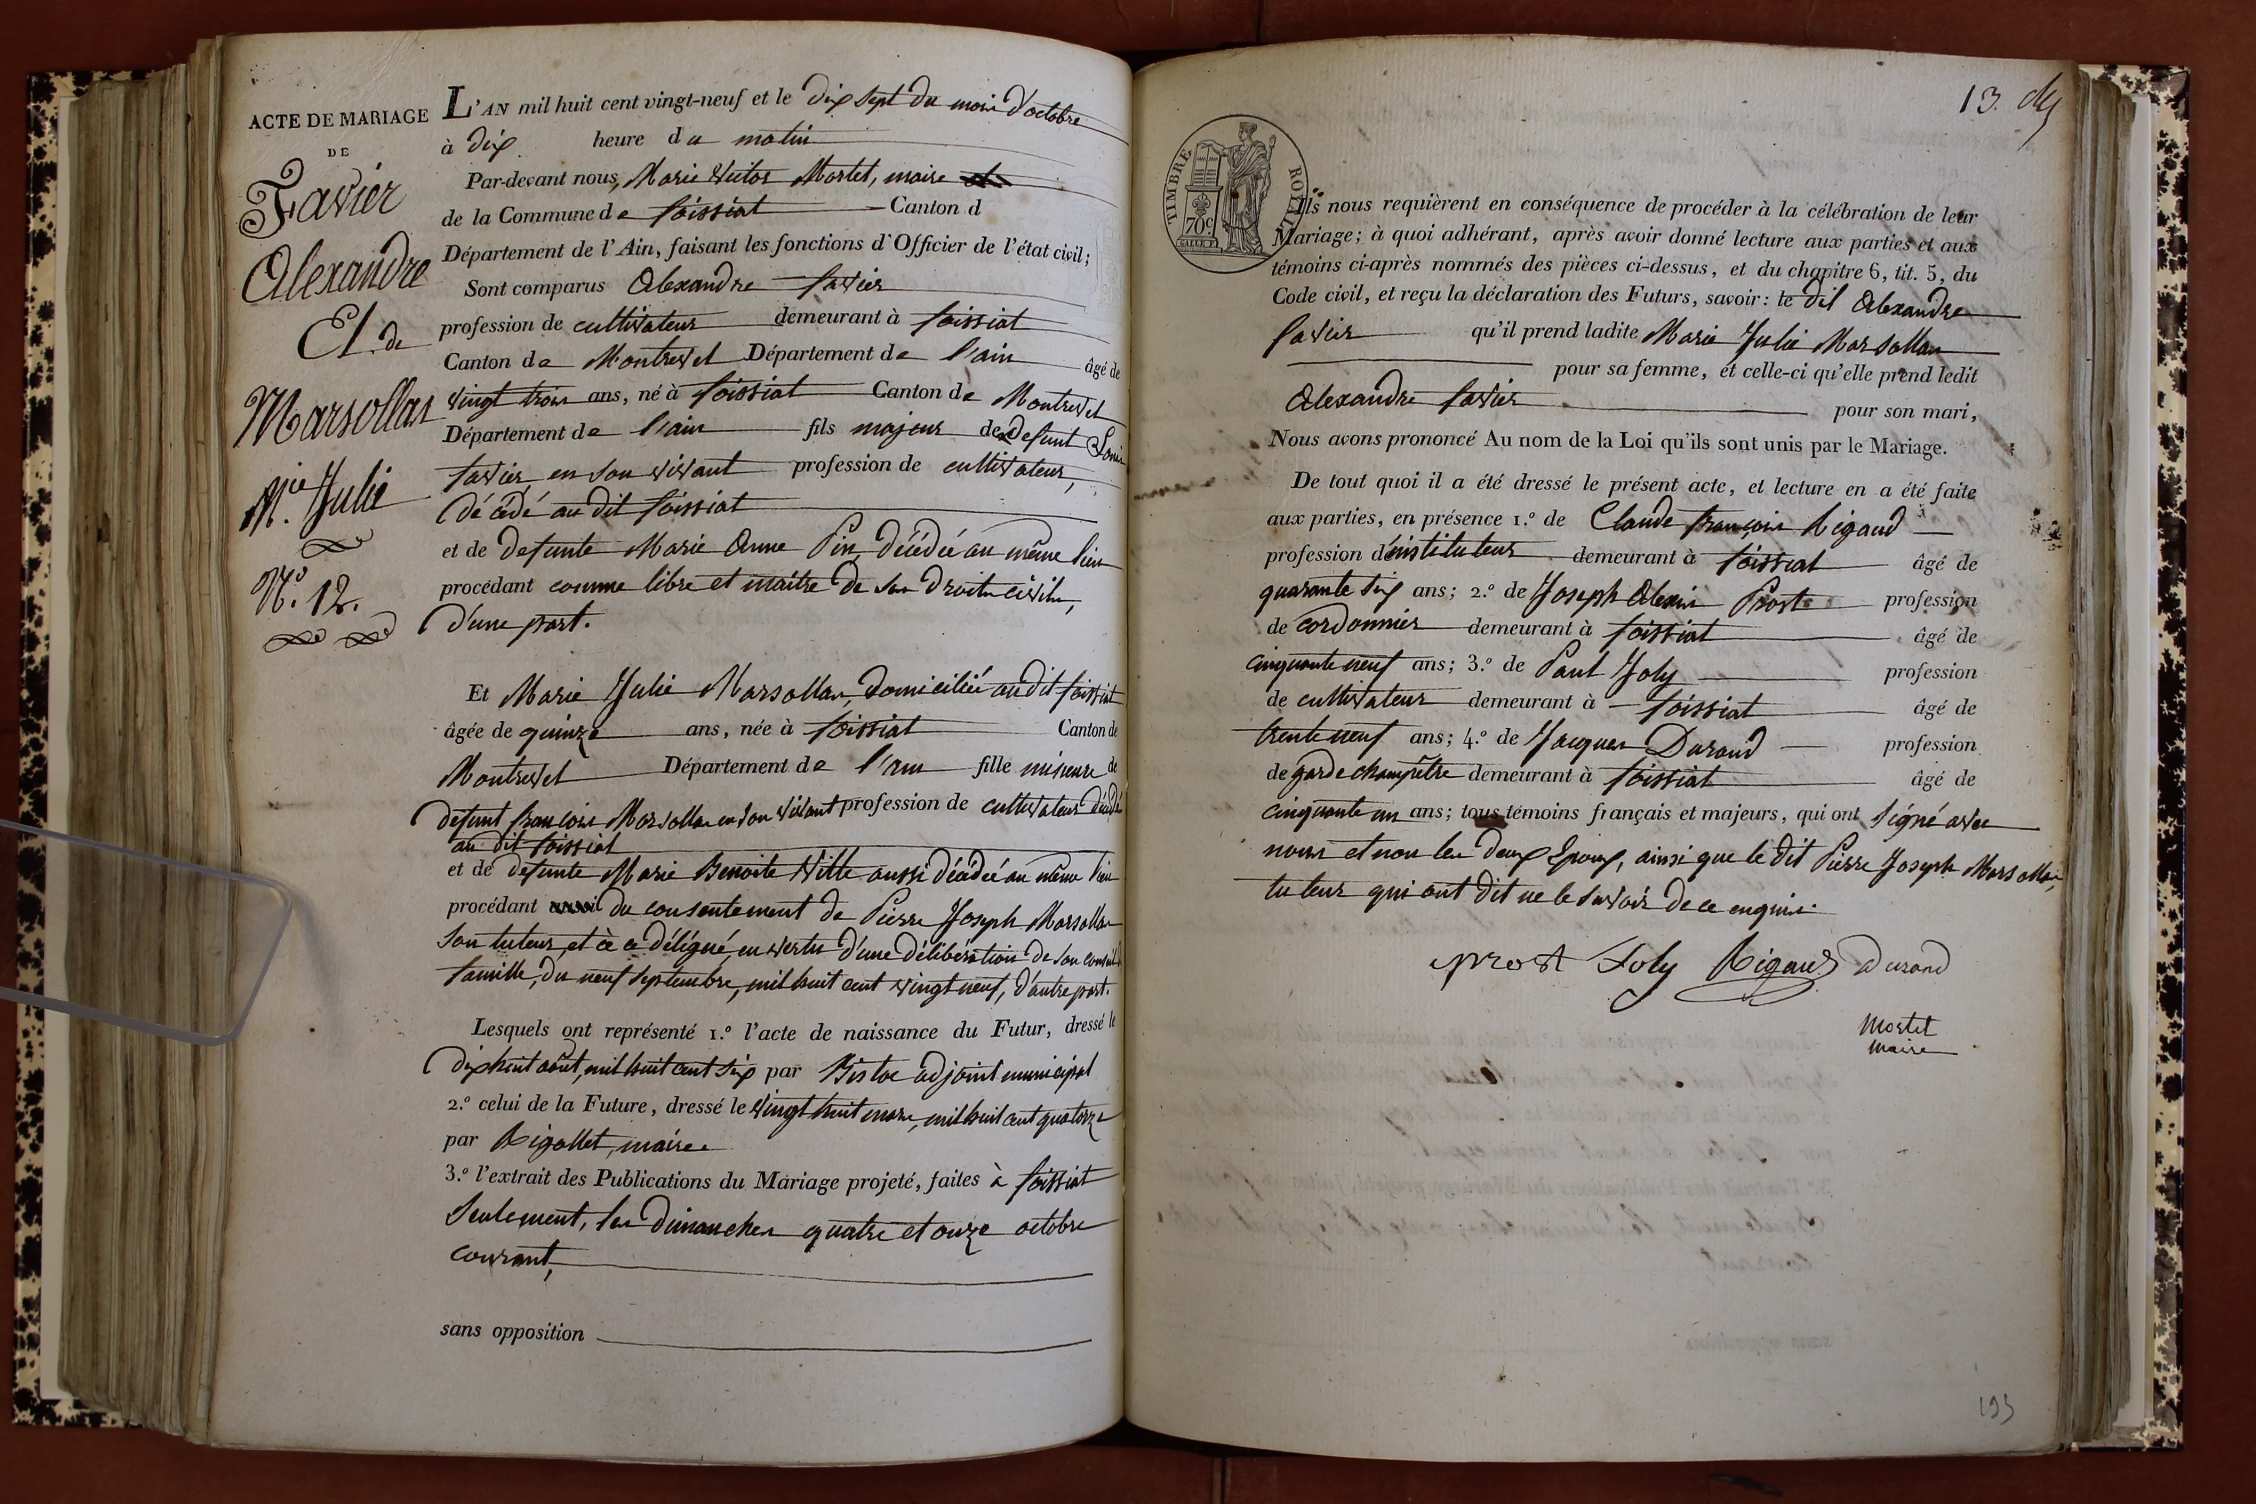 ACTE DE MARIAGE
DE
Favier
Alexandre
Et de
Marsollas
M.ie Julie
N.o 12.
L'AN mil huit cent vingt-neuf et le dix sept du mois d'octobre
à dix heure du matin
Par-devant nous, Marie Victor Mortet, maire
de la Commune de foissiat Canton d
Département de l'Ain, faisant les fonctions d'Officier de l'état civil;
Sont comparus Alexandre favier
profession de cultivateur demeurant à foissiat
Canton de Montrevel Département de l'ain âgé de
vingt trois ans, né à foissiat Canton de Montrevel
Département de l'ain fils majeur de defunt Louis
favier en son vivant profession de cultivateur,
décédé au dit foissiat
et de defunte Marie Anne Pin, décédée au même lieu
procédant comme libre et maitre de ses droits civils,
d'une part.
Et Marie Julie Marsollas, domiciliée au dit foissiat
âgée de quinze ans, née à foissiat Canton de
Montrevel Département de l'ain fille mineure de
defunt françois Marsollas en son vivant profession de cultivateur décédé
au dit foissiat
et de defunte Marie Benoite Ville aussi décédée au même lieu
procédant du consentement de Pierre Joseph Marsollas
son tuteur, et à ce délégué, en vertu d'une délibération de son conseil de
famille, du neuf septembre, mil huit cent vingt neuf, d'autre part.
Lesquels ont représenté 1.o l'acte de naissance du Futur, dressé le
dix huit août, mil huit cent six par adjoint municipal
2.o celui de la Future, dressé le vingt huit mars, mil huit cent quatorze
par Rigollet, maire
3.o l'extrait des Publications du Mariage projeté, faites à foissiat
seulement, les dimanches quatre et onze octobre
courant,
sans opposition
13. 
TIMBRE ROYAL
70c
Ils nous requièrent en conséquence de procéder à la célébration de leur
Mariage; à quoi adhérant, après avoir donné lecture aux parties et aux
témoins ci-après nommés des pièces ci-dessus, et du chapitre 6, tit. 5, du
Code civil, et reçu la déclaration des Futurs, savoir: le dit Alexandre
favier qu'il prend ladite Marie Julie Marsollas
pour sa femme, et celle-ci qu'elle prend ledit
Alexandre favier pour son mari,
Nous avons prononcé Au nom de la Loi qu'ils sont unis par le Mariage.
De tout quoi il a été dressé le présent acte, et lecture en a été faite
aux parties, en présence 1.o de Claude françois Rigaud
profession d'instituteur demeurant à foissiat âgé de
quarante six ans; 2.o de Joseph Alexis Prost profession
de cordonnier demeurant à foissiat âgé de
cinquante neuf ans; 3.o de Paul Joly profession
de cultivateur demeurant à foissiat âgé de
trente neuf ans; 4.o de Jacques Durand profession
de garde champêtre demeurant à foissiat âgé de
cinquante un ans; tous témoins français et majeurs, qui ont signé avec
nous et non les deux Epoux, ainsi que le dit Pierre Joseph Marsollas,
tuteur qui ont dit ne le savoir de ce enquis.
prost Joly Rigaud Durand
Mortet
Maire
193